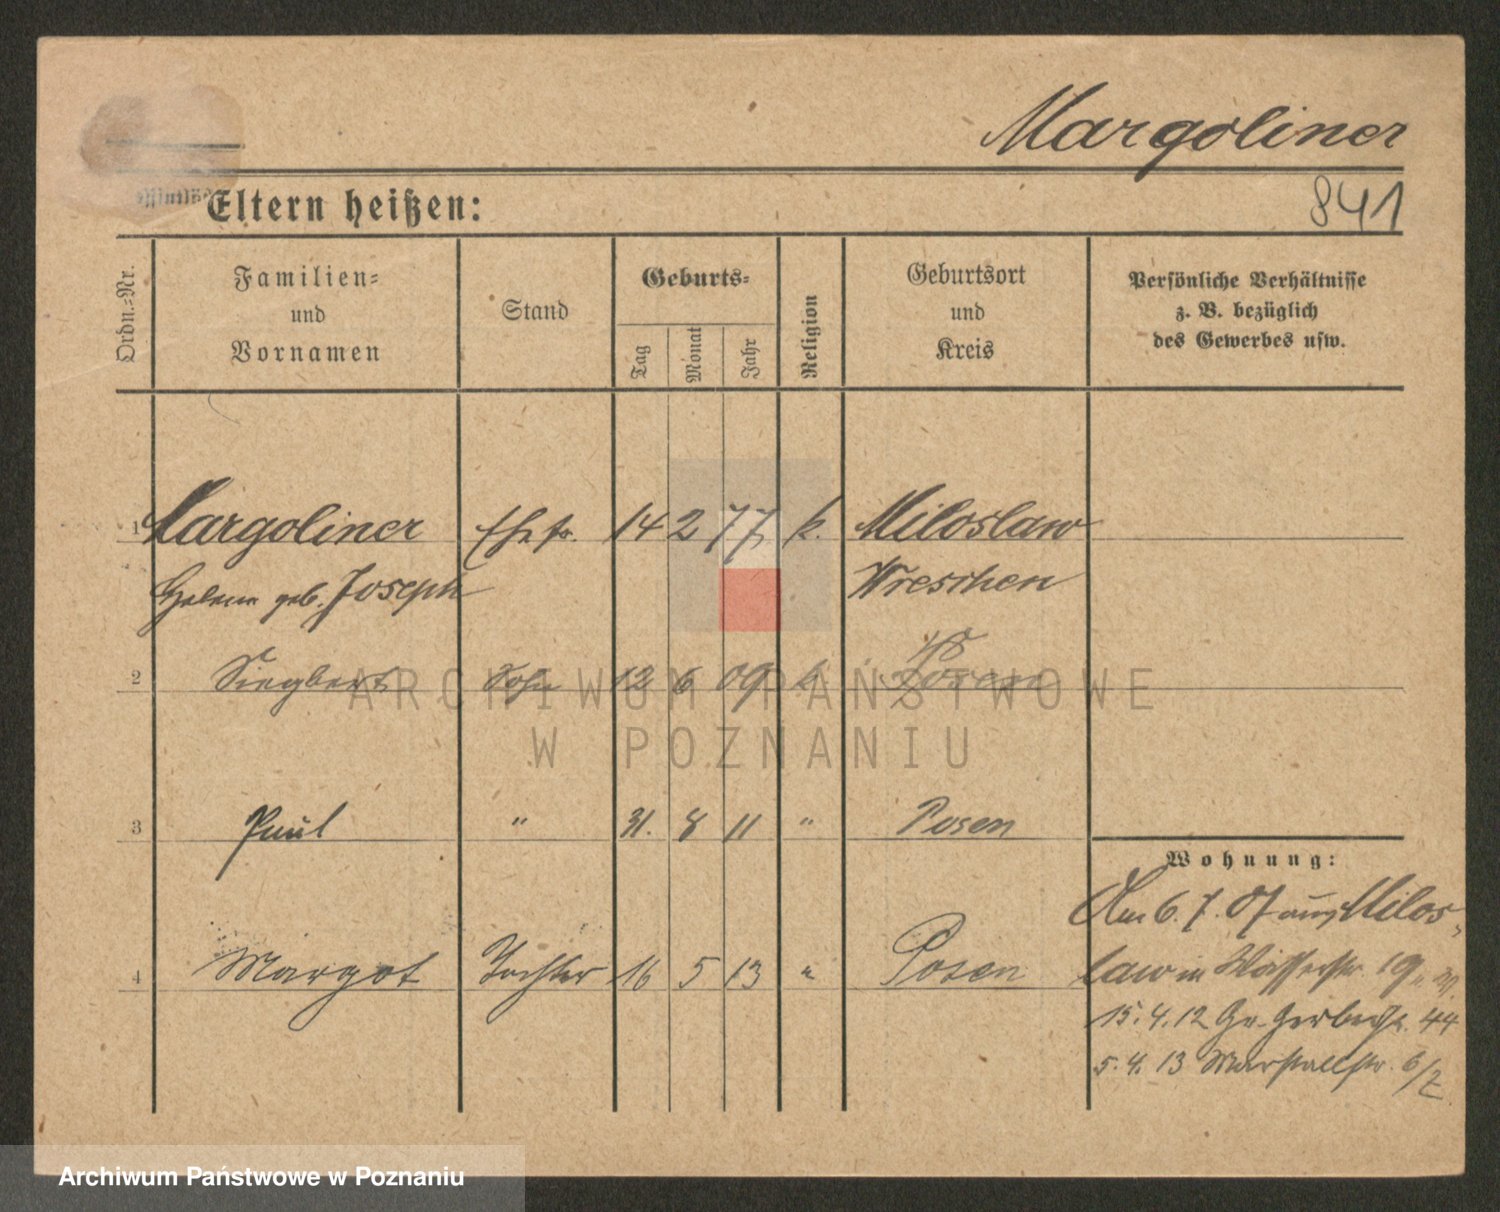 Margoliner
841
Eltern heißen:
Ordn.=Nr.
Familien=
und
Vornamen
Stand
Geburts=
Tag
Monat
Jahr
Religion
Geburtsort
und
Kreis
Persönliche Verhältnisse
z. B. bezüglich
des Gewerbes usw.
1 Margoliner Ehefr. 14 2 77 k. Miloslaw
Helene geb. Joseph Wreschen
2 Siegbert Sohn 12 6 09 k. Posen
ARCHIWUM PAŃSTWOWE
W POZNANIU
3 Paul " 31. 8 11 " Posen
Wohnung:
Am 6. 7. 07 aus Milos-
4 Margot Tochter 16 5 13 " Posen
law in Wasserstr. 19
15. 4. 12 Gr. Gerberstr. 44
5. 4. 13 Marstallstr. 6/7
Archiwum Państwowe w Poznaniu